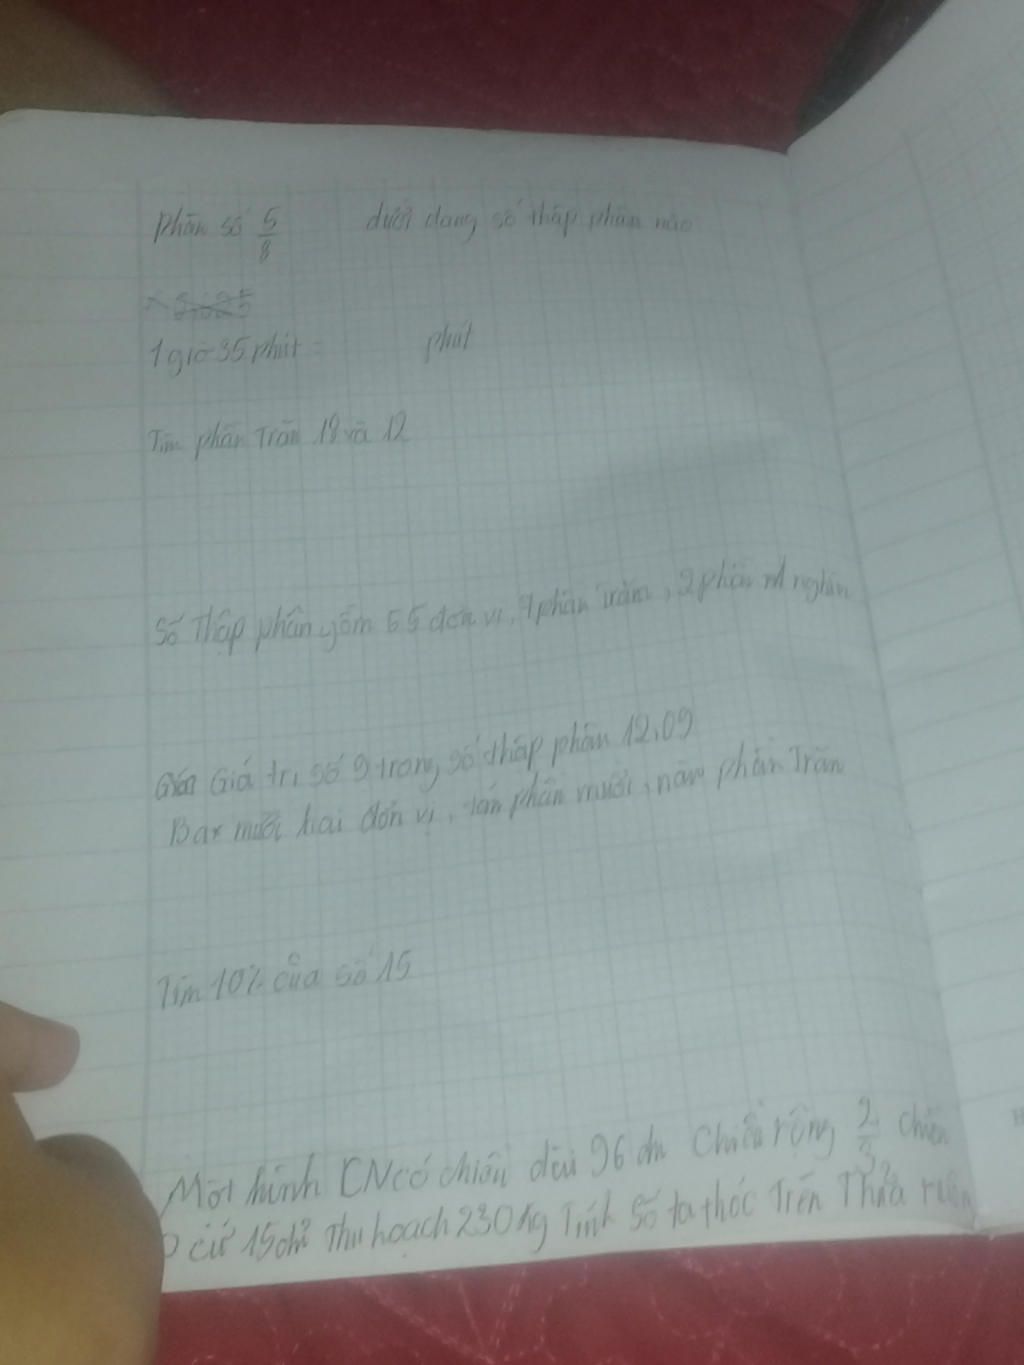 Phân số 5/8 dưới dạng số thập phân nào
1 giờ 35 phút = phút
Tìm phần Trăn 18 và 12
Số Thập phân gồm 55 đơn vị, 7 phần trăm, 2 phần nghìn
Giá trị số 9 trong số thập phân 12,09
Ba mười hai đơn vị, tán phần mười, năm phần Trăn
Tìm 10% của số 15
Một hình CN có chiều dài 96 dm Chiều rộng 2/3 chiều
cứ 15 dm² Thu hoạch 230 kg Tính Số tạ thóc Trên Thửa ruộn